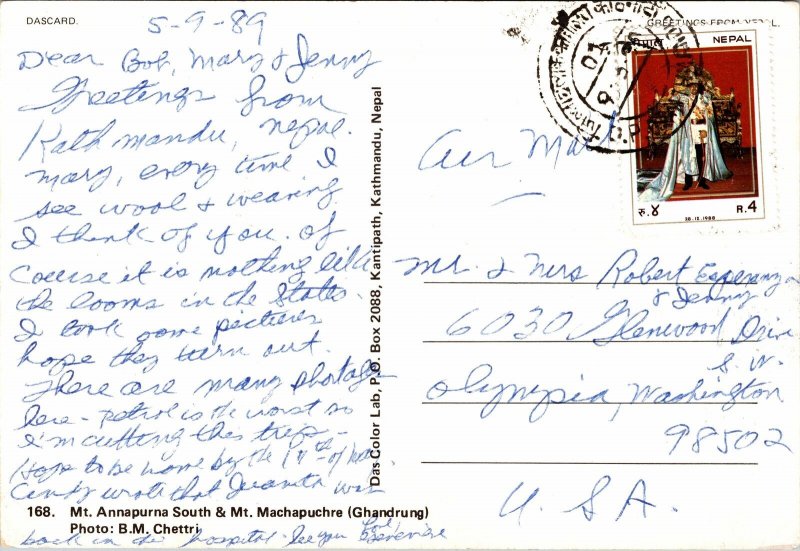 DASCARD.
GREETINGS FROM NEPAL.
5-9-89
Dear Bob, Mary & Jenny
Greetings from
Kathmandu, Nepal.
Mary, every time I
see wool & weaving
I think of you. Of
course it is nothing like
the looms in the States.
I took some pictures
hope they turn out.
There are many shortages
here - petrol is the worst so
I'm cutting this trip -
Hope to be home by the 17th of
Candy wrote that Juanita was
back in the hospital. See you
Love,
Das Color Lab, P.O. Box 2088, Kantipath, Kathmandu, Nepal
NEPAL
रु.४
R.4
28.12.1988
Air Mail
Mr & Mrs Robert
& Jenny
6030 Glenwood Drive
S.W.
Olympia, Washington
98502
U.S.A.
168. Mt. Annapurna South & Mt. Machapuchre (Ghandrung)
Photo: B.M. Chettri